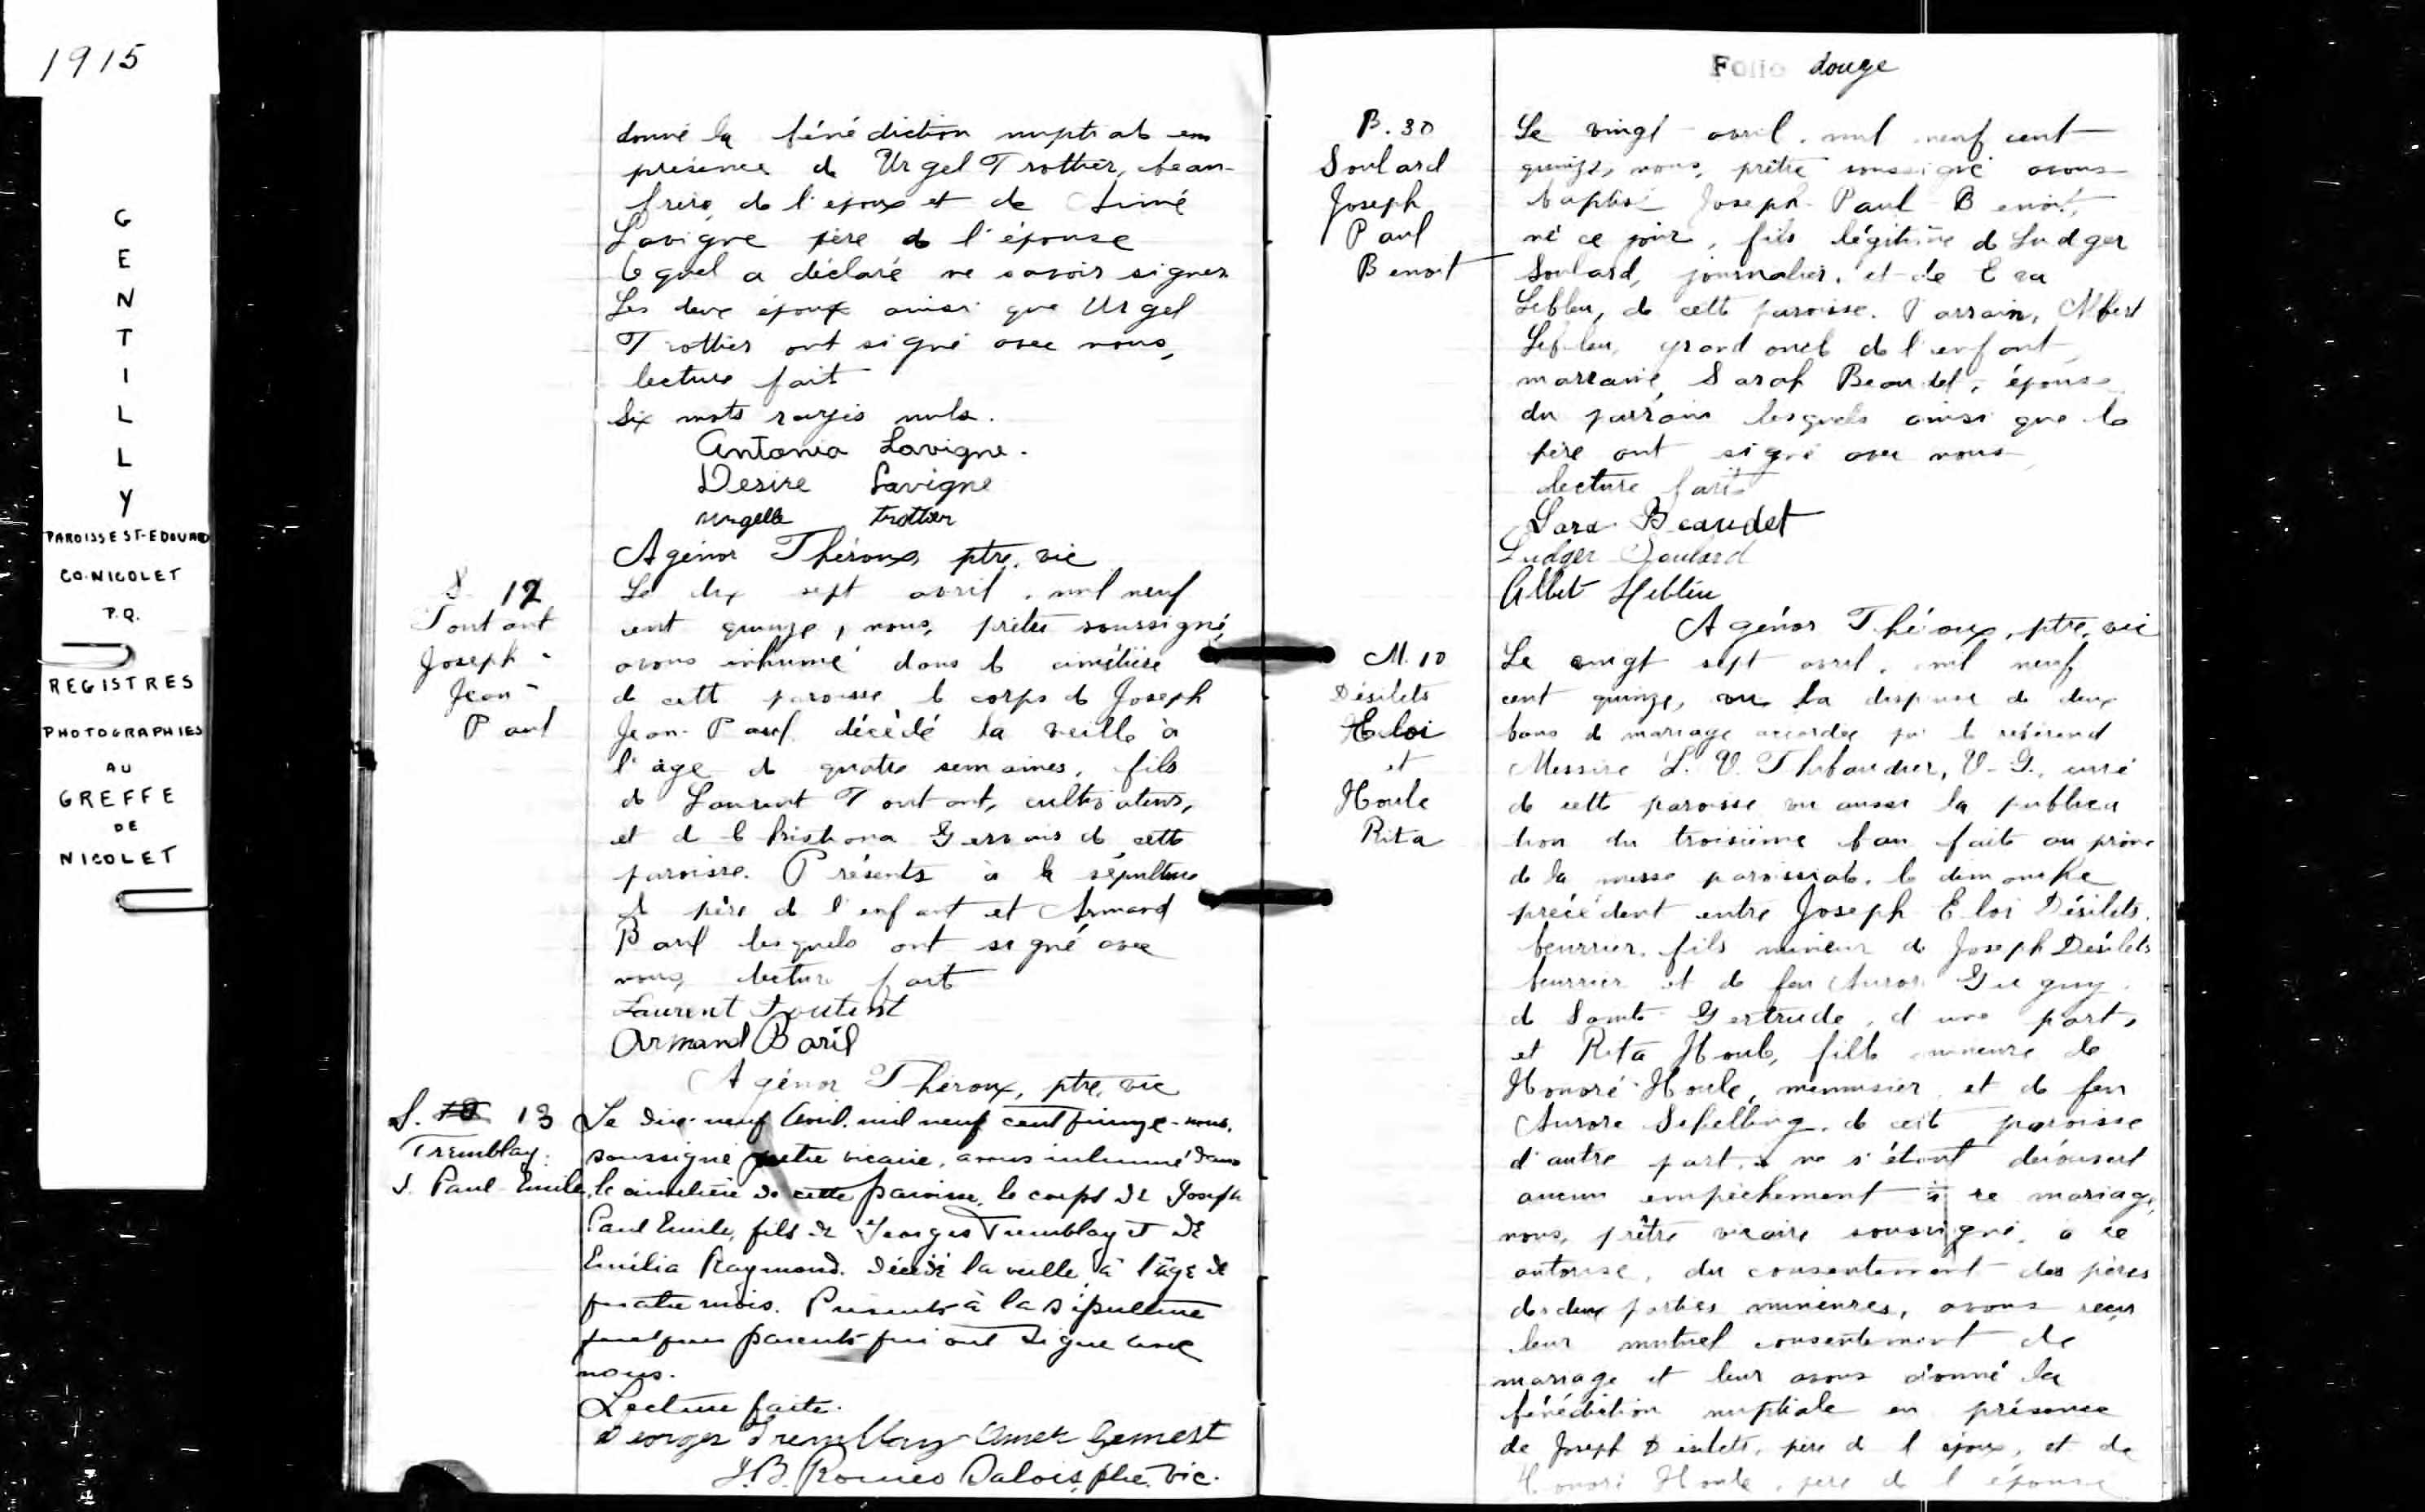 1915
GENTILLY
PAROISSE ST-EDOUARD
CO. NICOLET
P.Q.
REGISTRES
PHOTOGRAPHIES
AU
GREFFE
DE
NICOLET
donné la bénédiction nuptiale en
présence de Urgel Trottier, beau-
frère de l'époux et de Aimé
Lavigne père de l'épouse
lequel a déclaré ne savoir signer
Les deux époux ainsi que Urgel
Trottier ont signé avec nous,
lecture fait
Six mots rayés nuls.
Antonia Lavigne.
Desire Lavigne
urgelle trottier
Agénor Théroux, ptre. vic
S. 12
Toutant
Joseph-
Jean-
Paul
Le dix sept avril, mil neuf
cent quinze, nous, prêtre soussigné,
avons inhumé dans le cimétière
de cette paroisse le corps de Joseph
Jean-Paul décédé la veille à
l'âge de quatre semaines, fils
de Laurent Toutant, cultivateur,
et de Gervais de cette
paroisse. Présents à la sépulture
le père de l'enfant et Armand
Baril lesquels ont signé avec
nous, lecture fait
Laurent Toutant
Armand Baril
Agénor Théroux, ptre, vic
S. 13
Tremblay.
J. Paul-Emile
Le dix-neuf Avril. mil neuf cent quinze-nous,
soussigné prêtre vicaire, avons inhumé dans
le cimetière de cette paroisse, le corps de Joseph
Paul Emile, fils de Georges Tremblay et de
Emilia Raymond. Décédé la veille à l'âge de
quatre mois. Présents à la sépulture
quelques parents qui ont signé avec
nous.
Lecture faite.
Georges Tremblay Genest
J.B. Romeo Dalois, ptre. vic.
Folio douze
B. 30
Soulard
Joseph
Paul
Benoit
Le vingt avril, mil neuf cent
quinze, nous, prêtre soussigné avons
baptisé Joseph-Paul Benoit,
né ce jour, fils légitime de Ludger
Soulard, journalier, et de Eva
Lebleu, de cette paroisse. Parrain, Albert
Lebleu, grand oncle de l'enfant,
marraine, Sarah Beaudet, épouse
du parrain lesquels ainsi que le
père ont signé avec nous
lecture faite
Sara Beaudet
Ludger Soulard
Albert Hebleu
Agénor Théroux, ptre, vic
M. 10
Désilets
Eloi
et
Houle
Rita
Le vingt sept avril, mil neuf
cent quinze, vu la dispense de deux
bans de mariage accordée par le révérend
Messire L. V. Thibaudier, V-G., curé
de cette paroisse vu aussi la publica
tion du troisième ban faite au prône
de la messe paroissiale, le dimanche
précédent entre Joseph Eloi Désilets.
beurrier, fils mineur de Joseph Désilets
beurrier et de feu Aurore
de Sainte Gertrude, d'une part,
et Rita Houle, fille mineure de
Honoré Houle, menuisier et de feu
Aurore Schelling, de cette paroisse
d'autre part, ne s'étant découvert
aucun empêchement à ce mariage,
nous, prêtre vicaire soussigné, à ce
autorisé, du consentement des pères
des deux parties mineures, avons reçu
leur mutuel consentement de
mariage et leur avons donné la
bénédiction nuptiale en présence
de Joseph Désilets, père de l'époux, et de
Honoré Houle, père de l'épouse